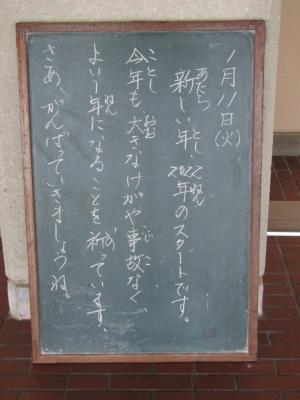 1月11日(火)
あたら とし ねん
新しい年、2022年のスタートです。
ことし おお じこ
今年も、大きなけがや事故なく、
ねん いの
よい1年になることを祈っています。
さあ、がんばっていきましょうね。